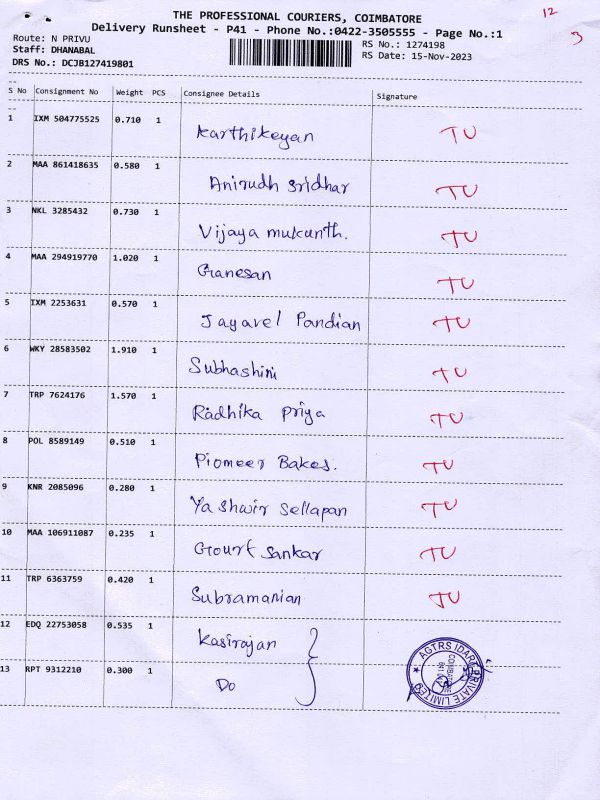 THE PROFESSIONAL COURIERS, COIMBATORE
12
Delivery Runsheet - P41 - Phone No.:0422-3505555 - Page No.:1
3
Route: N PRIVU
RS No.: 1274198
Staff: DHANABAL
RS Date: 15-Nov-2023
DRS No.: DCJB127419801
S No Consignment No Weight PCS Consignee Details Signature
1 IXM 504775525 0.710 1 Karthikeyan TU
2 MAA 861418635 0.580 1 Anirudh Sridhar TU
3 NKL 3285432 0.730 1 Vijaya mukunth. TU
4 MAA 294919770 1.020 1 Ganesan TU
5 IXM 2253631 0.570 1 Jayavel Pandian TU
6 WKY 28583502 1.910 1 Subhashini TU
7 TRP 7624176 1.570 1 Radhika Priya TU
8 POL 8589149 0.510 1 Piomeer Bakes. TU
9 KNR 2085096 0.280 1 Yashwir Sellapan TU
10 MAA 106911087 0.235 1 Gouri Sankar TU
11 TRP 6363759 0.420 1 Subramanian TU
12 EDQ 22753058 0.535 1 Kasirajan
13 RPT 9312210 0.300 1 Do
PRIVATE LIMITED